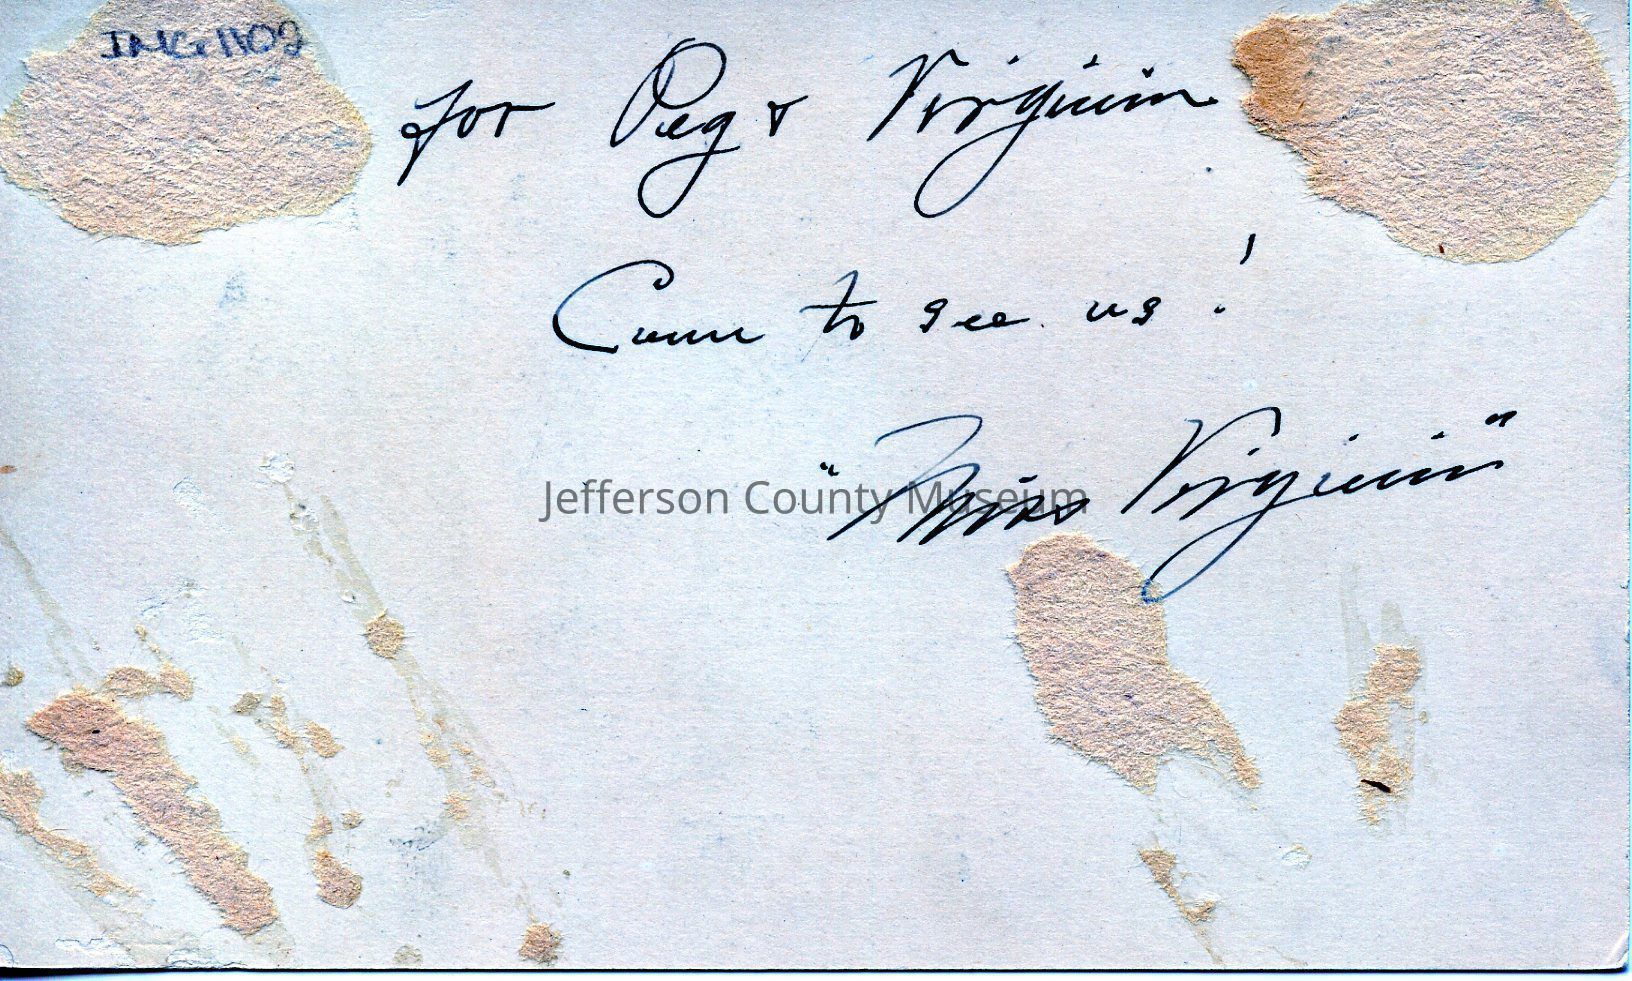 IMG1102
for Peg & Virginia
Come to see us!
"Miss Virginia"
Jefferson County Museum